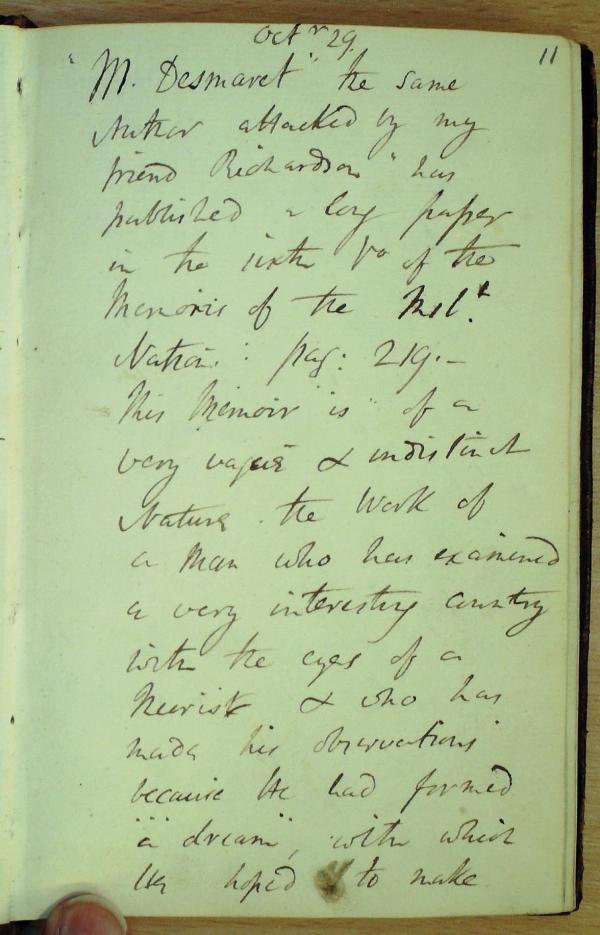 Octr 29.
11
"M. Desmaret" the same
Author attacked by my
friend Richardson" has
published a long paper
in the sixth Vo of the
Memoirs of the Inst.
Nation: pag: 219.-
This Memoir is of a
very vague & indistinct
Nature. the Work of
a Man who has examined
a very interesting country
with the eyes of a
theorist & who has
made his observations
because He had formed
"a dream", with which
He hoped to make